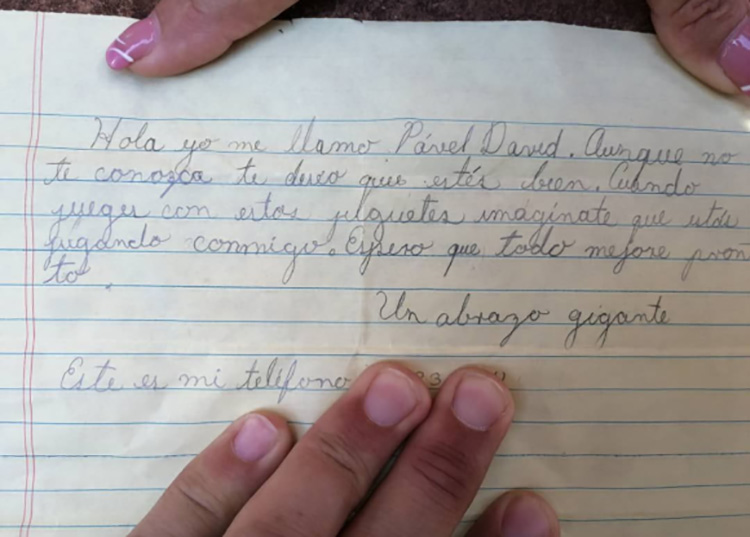 Hola yo me llamo Pável David. Aunque no
te conozca te deseo que estés bien. Cuando
juegues con estos juguetes imagínate que estás
jugando conmigo. Espero que todo mejore pron
to.
Un abrazo gigante
Este es mi teléfono